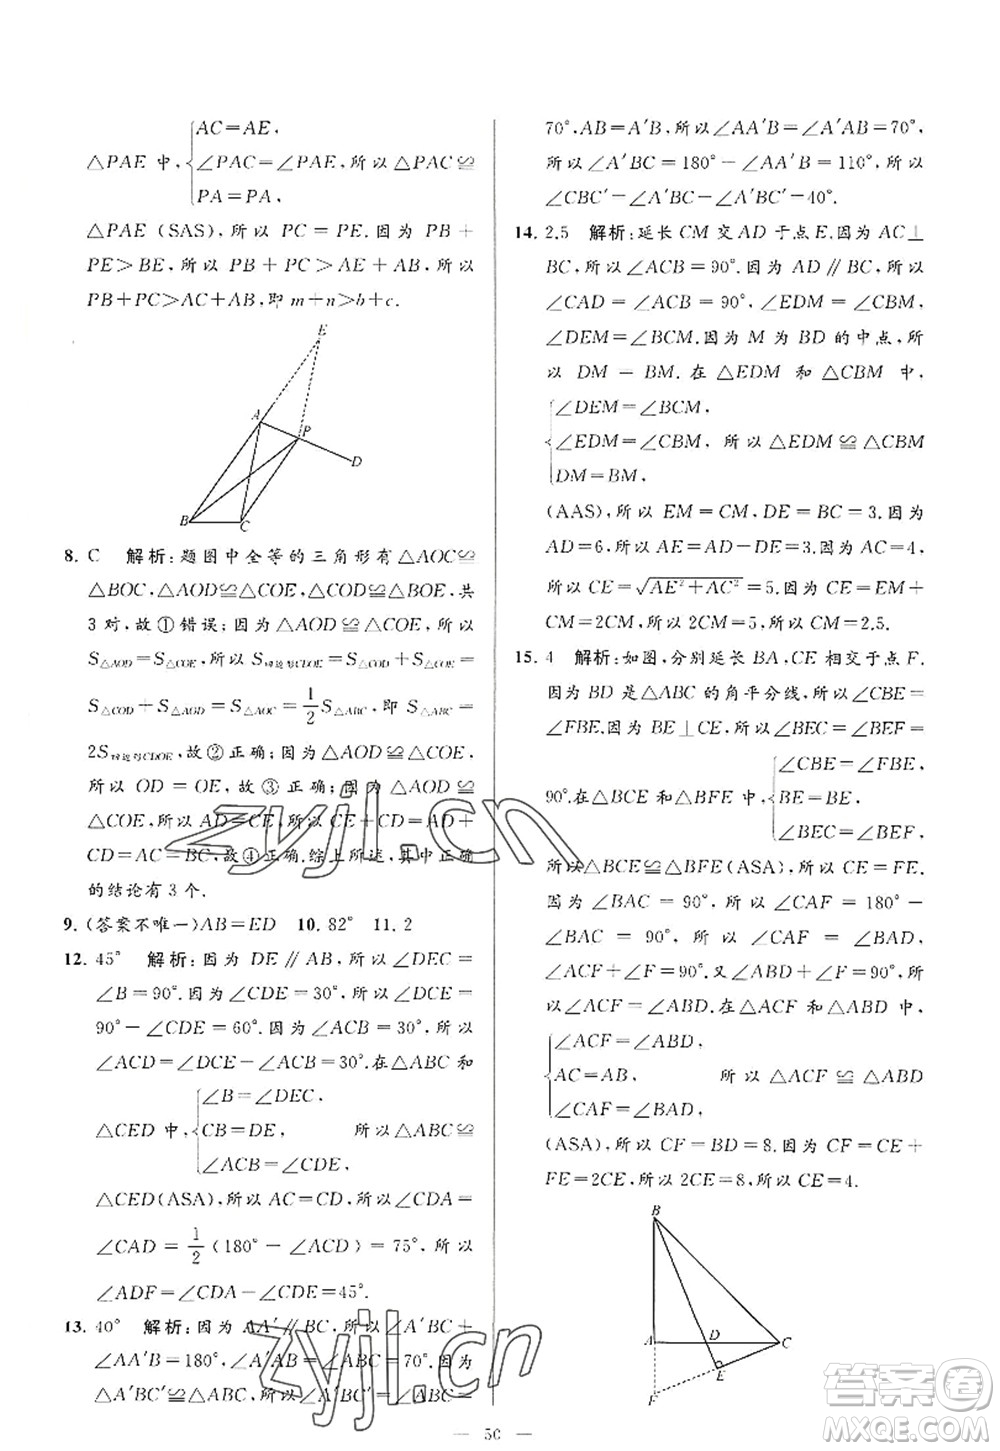 AC=AE,
△PAE 中,∠PAC=∠PAE,所以△PAC≌
PA=PA,
△PAE (SAS),所以 PC=PE.因为 PB+
PE>BE,所以 PB+PE>AE+AB,所以
PB+PC>AC+AB,即 m+n>b+c.
E
A
P
D
B
C
8. C 解析:题图中全等的三角形有△AOC≌
△BOC,△AOD≌△COE,△COD≌△BOE,共
3 对,故①错误;因为△AOD≌△COE,所以
S△AOD=S△COE,所以S四边形CDOE=S△COD+S△COE=
S△COD+S△AOD=S△AOC=1/2S△ABC,即 S△ABC=
2S四边形CDOE,故②正确;因为△AOD≌△COE,
所以 OD=OE,故③正确;因为△AOD≌
△COE,所以AD=CE,所以CE+CD=AD+
CD=AC=BC,故④正确.综上所述,其中正确
的结论有 3 个.
9. (答案不唯一)AB=ED 10. 82° 11. 2
12. 45° 解析:因为 DE∥AB,所以∠DEC=
∠B=90°.因为∠CDE=30°,所以∠DCE=
90°-∠CDE=60°.因为∠ACB=30°,所以
∠ACD=∠DCE-∠ACB=30°.在△ABC 和
∠B=∠DEC,
△CED 中,CB=DE, 所以△ABC≌
∠ACB=∠CDE,
△CED(ASA),所以 AC=CD,所以∠CDA=
∠CAD=1/2(180°-∠ACD)=75°,所以
∠ADF=∠CDA-∠CDE=45°.
13. 40° 解析:因为 AA′∥BC,所以∠A′BC+
∠AA′B=180°,∠A′AB=∠ABC=70°.因为
△A′BC′≌△ABC,所以∠A′BC′=∠ABC=
70°,AB=A′B,所以∠AA′B=∠A′AB=70°,
所以∠A′BC=180°-∠AA′B=110°,所以
∠CBC′=∠A′BC-∠A′BC′=40°.
14. 2.5 解析:延长 CM 交 AD 于点 E.因为 AC⊥
BC,所以∠ACB=90°.因为 AD∥BC,所以
∠CAD=∠ACB=90°,∠EDM=∠CBM,
∠DEM=∠BCM.因为 M 为 BD 的中点,所
以 DM=BM.在 △EDM 和 △CBM 中,
∠DEM=∠BCM,
∠EDM=∠CBM, 所以△EDM≌△CBM
DM=BM,
(AAS),所以 EM=CM,DE=BC=3.因为
AD=6,所以 AE=AD-DE=3.因为AC=4,
所以CE=√AE²+AC²=5.因为 CE=EM+
CM=2CM,所以2CM=5,所以CM=2.5.
15. 4 解析:如图,分别延长 BA,CE 相交于点 F.
因为 BD 是△ABC 的角平分线,所以∠CBE=
∠FBE.因为 BE⊥CE,所以∠BEC=∠BEF=
∠CBE=∠FBE,
90°.在△BCE 和△BFE 中,BE=BE,
∠BEC=∠BEF,
所以△BCE≌△BFE(ASA),所以 CE=FE.
因为∠BAC=90°,所以∠CAF=180°-
∠BAC = 90°, 所以 ∠CAF = ∠BAD,
∠ACF+∠F=90°.又∠ABD+∠F=90°,所
以∠ACF=∠ABD.在△ACF 和△ABD 中,
∠ACF=∠ABD,
AC=AB, 所以 △ACF ≌ △ABD
∠CAF=∠BAD,
(ASA),所以 CF=BD=8.因为 CF=CE+
FE=2CE,所以2CE=8,所以CE=4.
B
A
D
C
E
F
zyjl.cn
zyjl.cn
答案圈
MXQE.COM
— 50 —